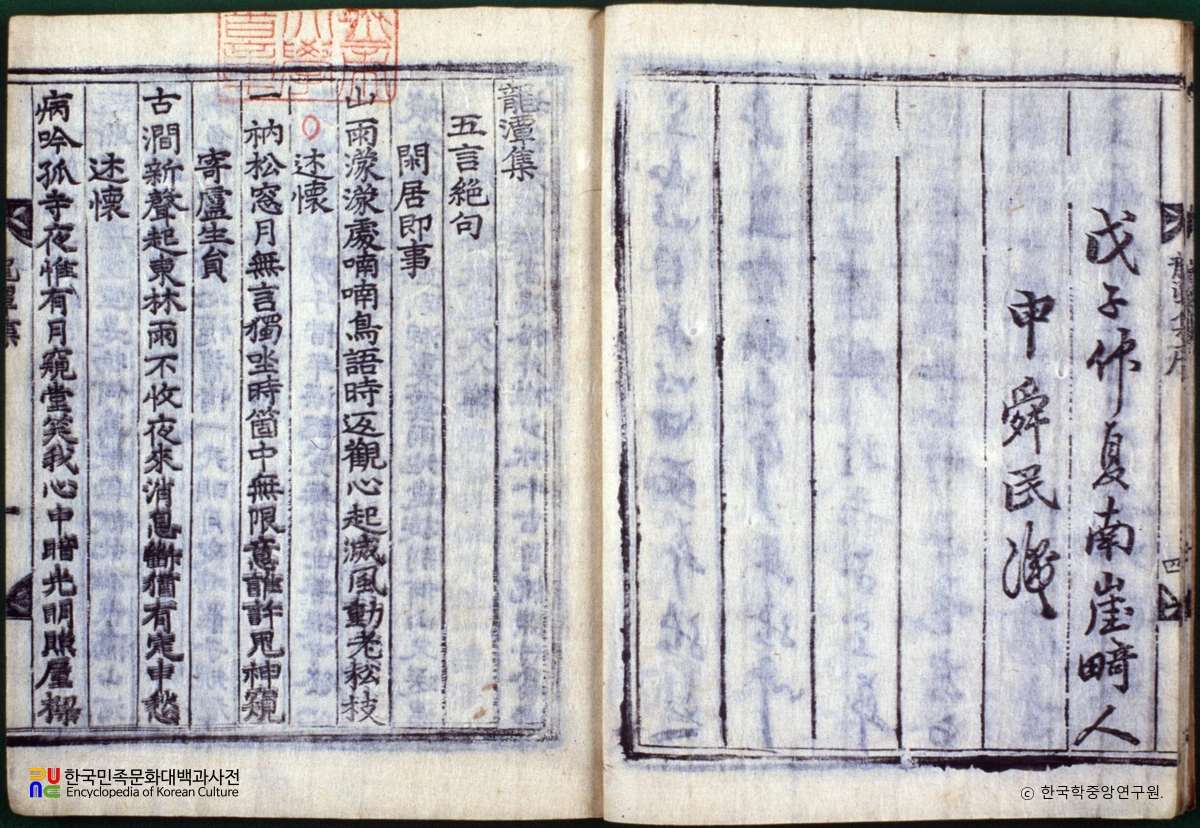 戊子仲夏南崖畸人
申舜民
四
龍潭集
五言絶句
閑居即事
山雨濛濛處喃喃鳥語時返觀心起滅風動老松枝
述懷
一衲松窓月無言獨坐時箇中無限意誰許鬼神窺
寄盧生貟
古澗新聲起東林雨不收夜來消息斷猶有定中愁
述懷
病吟孤寺夜惟有月窺堂笑我心中暗光明照屋樑
한국민족문화대백과사전
Encyclopedia of Korean Culture
ⓒ 한국학중앙연구원.